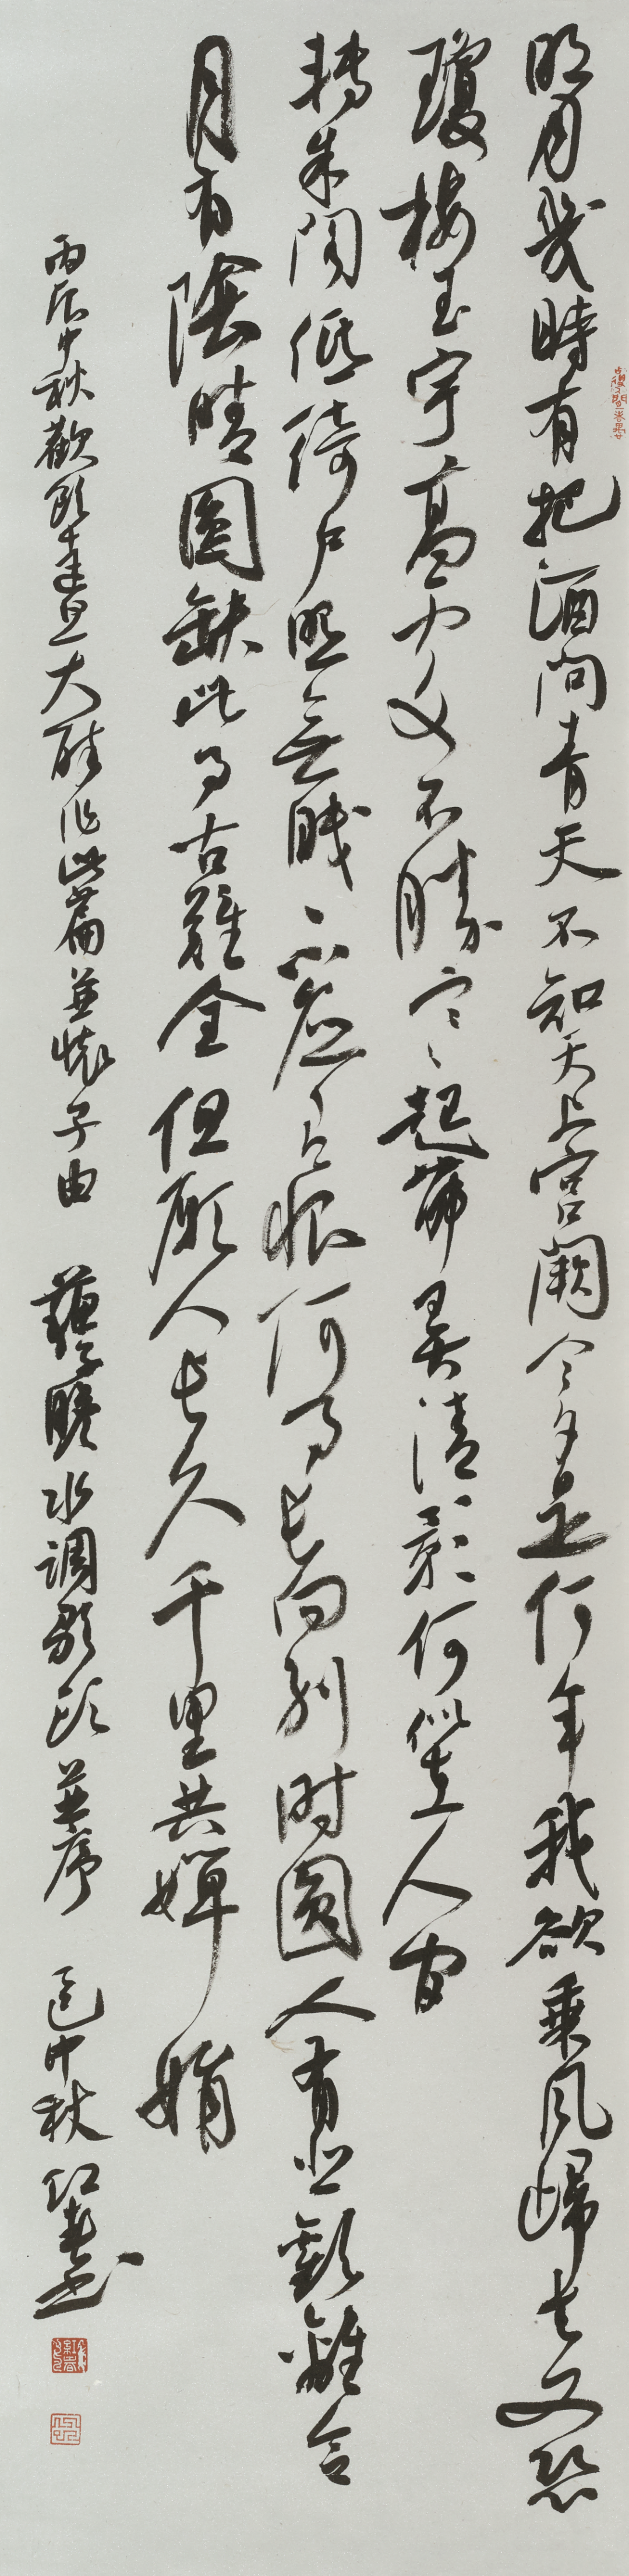 明月幾時有把酒問青天不知天上宮闕今夕是何年我欲乘風歸去又恐
瓊樓玉宇高處不勝寒起舞弄清影何似在人間
轉朱閣低綺戶照無眠不應有恨何事長向別時圓人有悲歡離合
月有陰晴圓缺此事古難全但願人長久千里共嬋娟
丙辰中秋歡飲達旦大醉作此篇並懷子由 蘇子瞻水調歌頭並序 中秋 紅春書
紅春